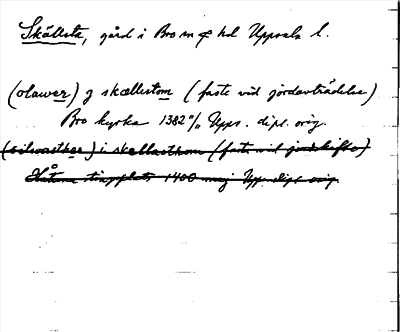 Skällsta, gård i Bro sn o hd Uppsala l.
(olawer) j skællistom (faste vid jordavträdelse)
Bro kyrka 1382 Upps. dipl. orig.
(siluasther) i skællasthom (faste vid jordskifte)
Håtuna tingplats 1400 maj Upps. dipl. orig.